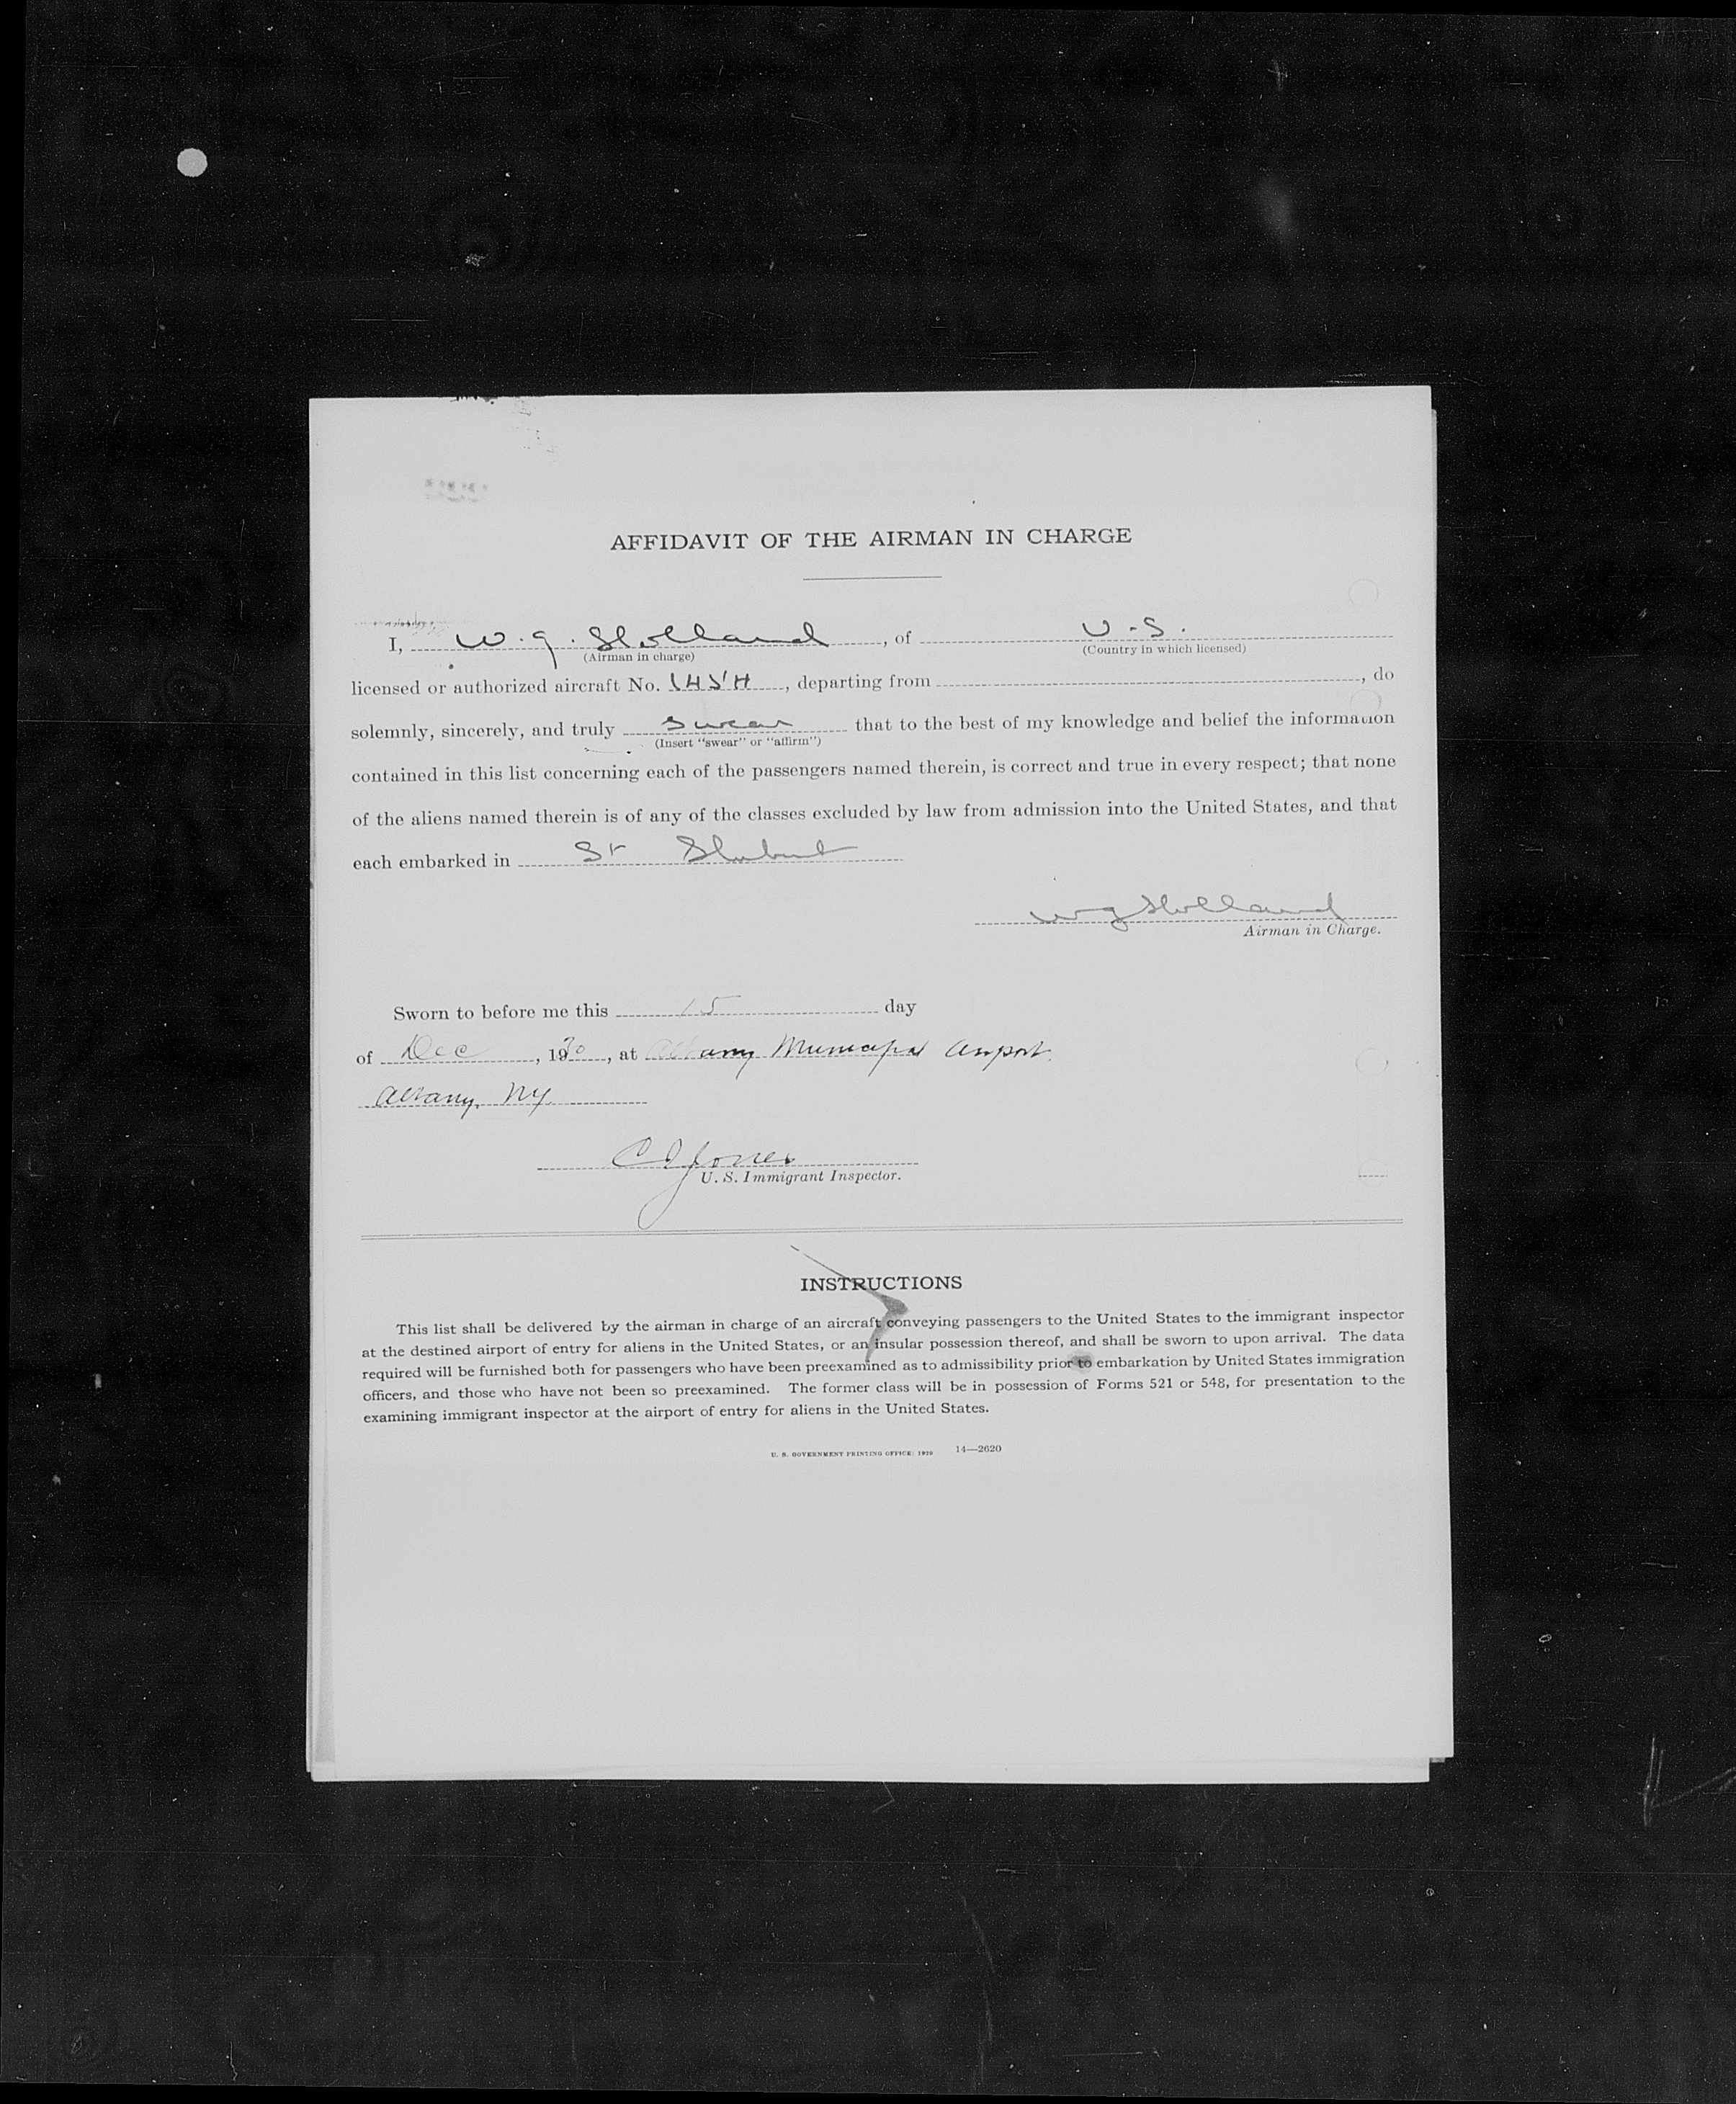 AFFIDAVIT OF THE AIRMAN IN CHARGE
I, W. G. Holland, of U.S.
(Airman in charge) (Country in which licensed)
licensed or authorized aircraft No. 145H, departing from , do
solemnly, sincerely, and truly swear that to the best of my knowledge and belief the information
(Insert "swear" or "affirm")
contained in this list concerning each of the passengers named therein, is correct and true in every respect; that none
of the aliens named therein is of any of the classes excluded by law from admission into the United States, and that
each embarked in St Hubert
WG Holland
Airman in Charge.
Sworn to before me this 15 day
of Dec, 1930, at Albany Municipal Airport.
Albany, NY.
C J Jones
U. S. Immigrant Inspector.
INSTRUCTIONS
This list shall be delivered by the airman in charge of an aircraft conveying passengers to the United States to the immigrant inspector
at the destined airport of entry for aliens in the United States, or an insular possession thereof, and shall be sworn to upon arrival. The data
required will be furnished both for passengers who have been preexamined as to admissibility prior to embarkation by United States immigration
officers, and those who have not been so preexamined. The former class will be in possession of Forms 521 or 548, for presentation to the
examining immigrant inspector at the airport of entry for aliens in the United States.
U. S. GOVERNMENT PRINTING OFFICE: 14—2620